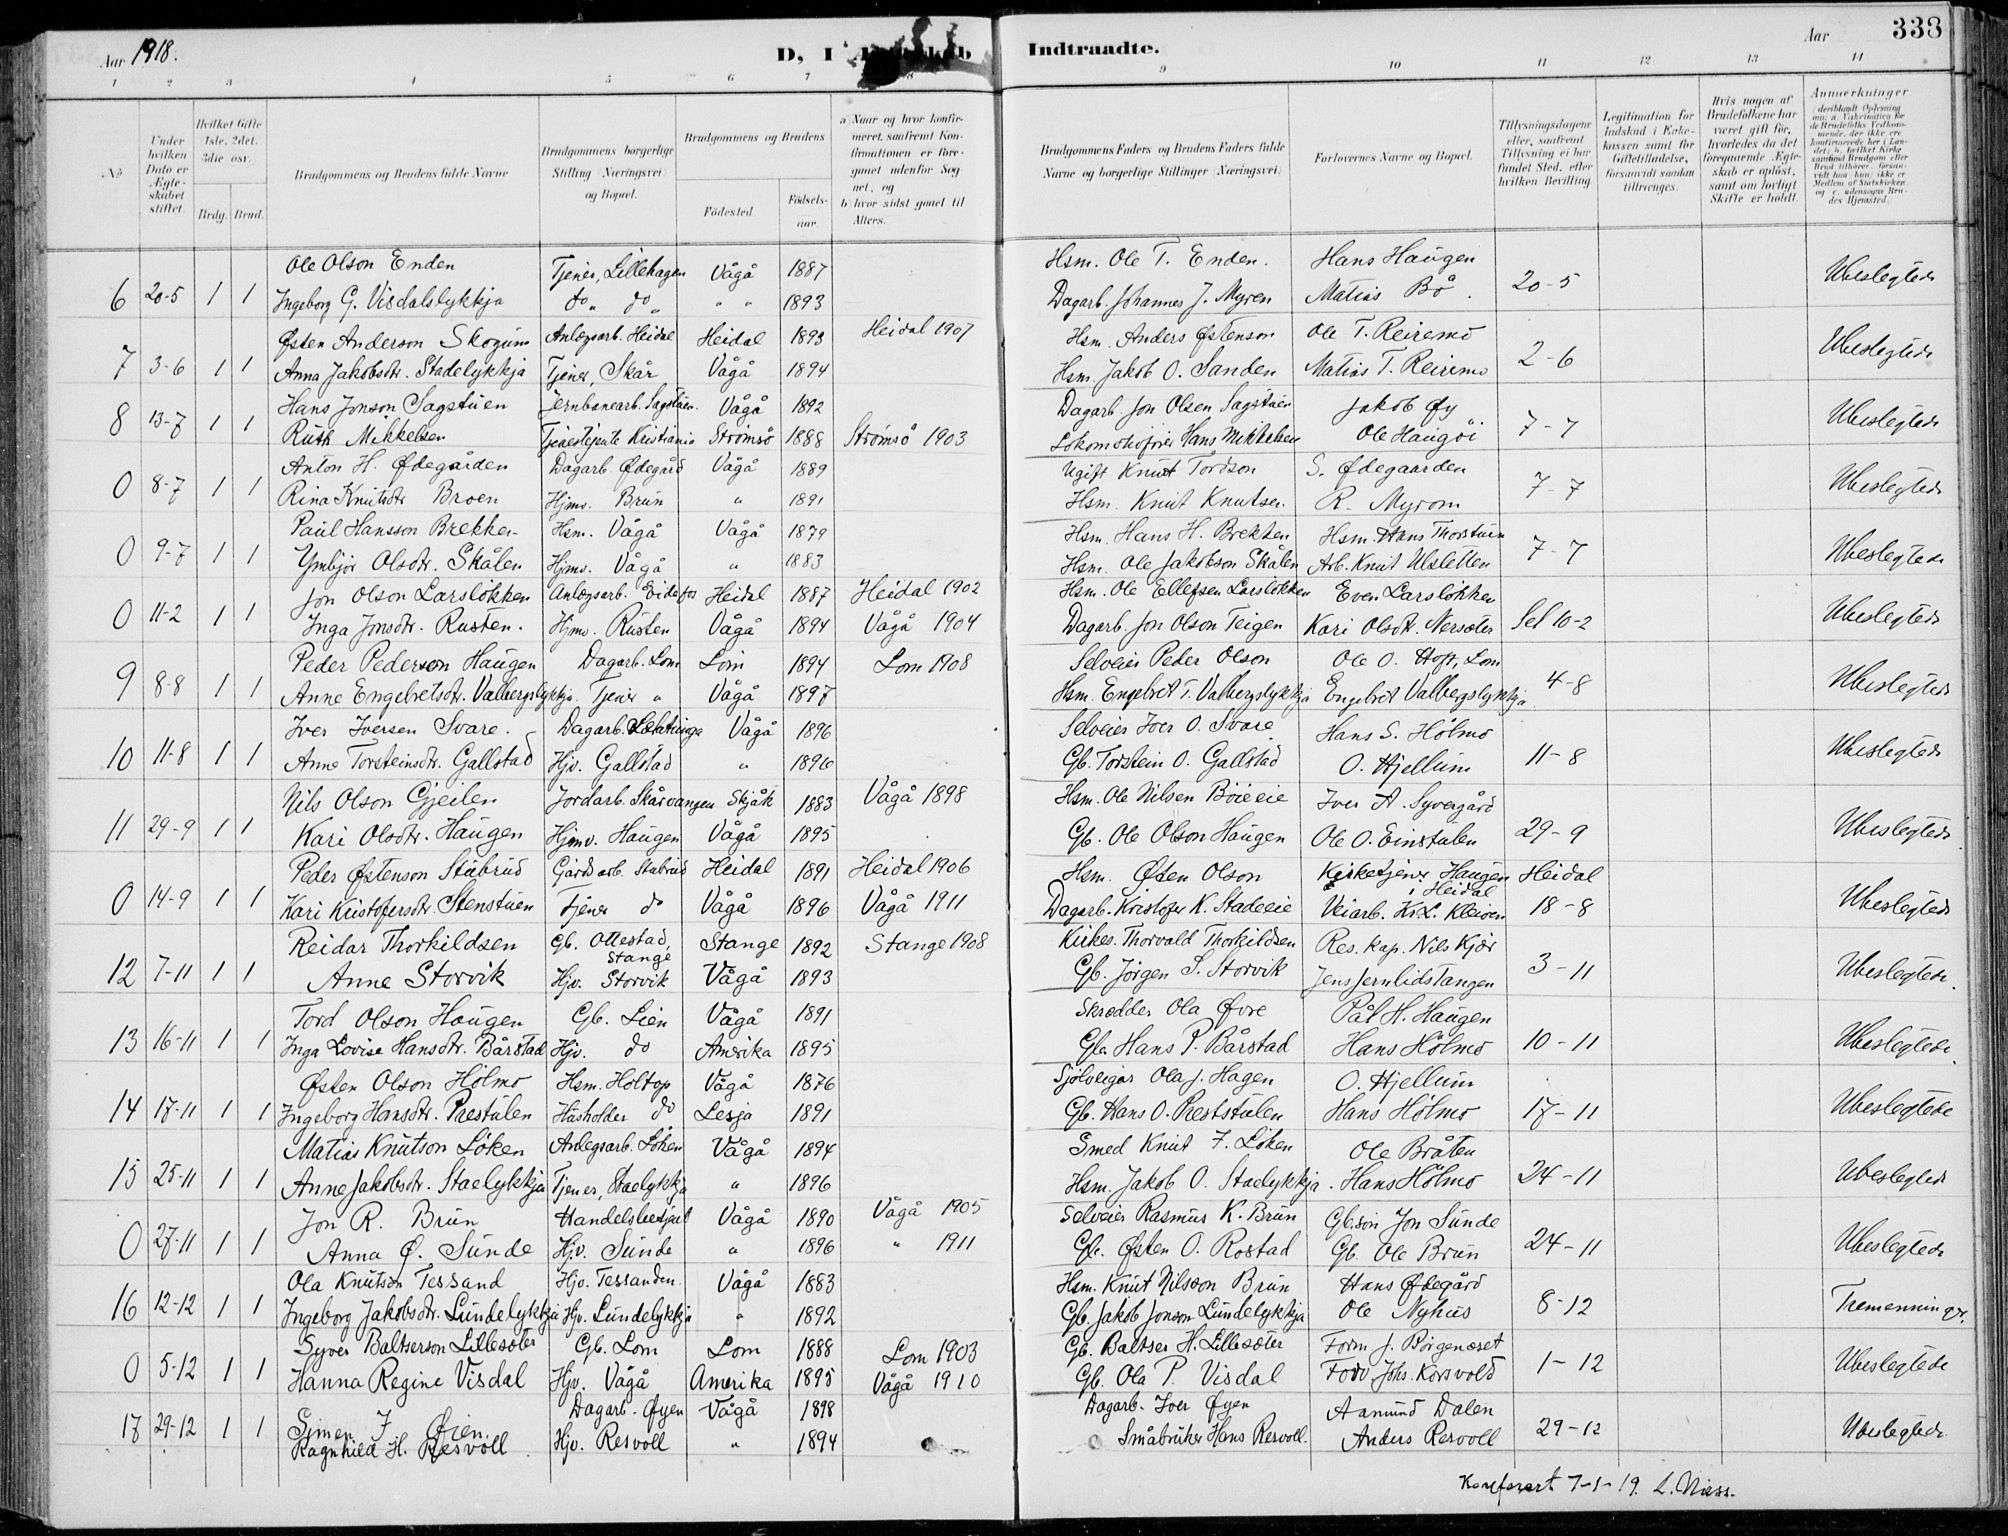 Aar 1918.
D, I
Indtraadte.
Aar
338
1 2 3 4 5 6 7 8 9 10 11 12 13 14
No
Under hvilken Dato er Ægteskabet stiftet.
Hvilket Gifte 1ste, 2det, 3die osv.
Brdg. Brud.
Brudgommens og Brudens fulde Navne
Brudgommens borgerlige Stilling (Næringsvei) og Bopæl.
Brudgommens og Brudens
Fødested.
Fødselsaar.
a Naar og hvor konfirmeret, saafremt Konfirmationen er foregaaet udenfor Sognet, og
b hvor sidst gaaet til Alters.
Brudgommens Faders og Brudens Faders fulde Navne og borgerlige Stillinger (Næringsvei)
Forlovernes Navne og Bopæl.
Tillysningsdagene eller, saafremt Tillysning ei har fundet Sted, efter hvilken Bevilling.
Legitimation for Indskud i Enkekassen samt for Giftetilladelse, forsaavidt saadan tiltrænges.
Hvis nogen af Brudefolkene har været gift før, hvorledes da det foregaaende Ægteskab er opløst, samt om lovligt Skifte er holdt.
Anmærkninger
Ole Olson Enden Tjener, Lillehagen Vågå 1887 Hsm. Ole T. Enden. Hans Haugen
6 20-5 1 1 Ingeborg G. Visdalslykkja do „ do „ „ „ 1893 Dagarb. Johannes J. Myren Matias Bø. 20-5 Ubeslegtede
Østen Anderson Skogum Anlægsarb. Heidal Heidal 1893 Heidal 1907 Hsm. Anders Østenson Ole T. Reiremo
7 3-6 1 1 Anna Jakobsdtr. Stadelykkja Tjener, Skår Vågå 1894 Hsm. Jakob O. Sanden Matias T. Reiremo 2-6 Ubeslegtede
Hans Jonson Sagstuen Jernbanearb. Sagstuen. Vågå 1892 Dagarb. Jon Olsen Sagstuen Jakob Øy
8 13-7 1 1 Ruth Mikkelsen Tjenestejente Kristiania Strømsø 1888 Strømsø 1903 Lokomotivfører Hans Mikkelsen Ole Haugøi 7-7 Ubeslegtede
Anton H. Ødegården Dagarb Ødegård Vågå 1889 Ugift Knut Tordson S. Ødegaarden
0 8-7 1 1 Rina Knutsdtr Broen Hjmv. Brun „ 1891 Hsm. Knut Knutsen. R. Myrom 7-7 Ubeslegtede
Paul Hansson Brekken Hsm. Vågå Vågå 1879 Hsm. Hans H. Brekken Hsm. Hans Thorstuen
0 9-7 1 1 Ymbjør Olsdtr. Skålen Hjmv. Vågå „ 1883 Hsm. Ole Jakobson Skålen Arb. Knut Ulsletten 7-7 Ubeslegtede
Jon Olson Larsløkken Anlægsarb. Eidefos Heidal 1887 Heidal 1902 Hsm. Ole Ellefsen Larsløkken Even Larsløkken
0 11-2 1 1 Inga Jonsdtr. Rusten. Hjmv. Rusten Vågå 1894 Vågå 1904 Dagarb. Jon Olson Teigen Kari Olsdtr. Nersæter Sel 10-2 Ubeslegtede
Peder Pederson Haugen Dagarb. Lom Lom 1894 Lom 1908 Selveier Peder Olson Ole O. Hoft, Lom
9 8-8 1 1 Anne Engebretsdtr. Valbergslykkja. Tjener „ Vågå 1897 Hsm. Engebret T. Valbergslykkja Engebret Valbergslykkja 4-8 Ubeslegtede
Iver Iversen Svare. Dagarb. Vågå 1896 Selveier Iver O. Svare Hans S. Hølmo
10 11-8 1 1 Anne Torsteinsdtr. Gallstad Hjv. Gallstad „ 1896 Gb. Torstein O. Gallstad O. Hjellum 11-8 Ubeslegtede
Nils Olson Gjeilen Jordarb. Skårvangen Skjåk 1883 Vågå 1898 Hsm. Ole Nilsen Bøieeie Iver A. Syvergård
11 29-9 1 1 Kari Olsdtr. Haugen Hjmv. Haugen Vågå 1895 Gb. Ole Olson Haugen Ole O. Einstulen 29-9 Ubeslegtede
Peder Østenson Stabrud Gårdsarb. Stabrud Heidal 1891 Heidal 1906 Hsm. Østen Olson Kirketjener Haugen i Heidal Heidal
0 14-9 1 1 Kari Kristofersdtr. Stenstuen Tjener do Vågå 1896 Vågå 1911 Dagarb. Kristofer K. Stadeeie Veiarb. Kr. L. Kleiven 18-8 Ubeslegtede
Reidar Thorkildsen Gb. Ottestad, Stange Stange 1892 Stange 1908 Kirkes. Thorvald Thorkildsen Res. kap. Nils Kjær
12 7-11 1 1 Anne Storvik Hjv. Storvik Vågå 1893 Gb. Jørgen S. Storvik Jens Jernlidstangen 3-11 Ubeslegtede.
Tord Olson Haugen Gb. Lien Vågå 1891 Skrædder Ola Øvre Pål H. Haugen
13 16-11 1 1 Inga Lovise Hansdtr. Bårstad Hjv. do Amerika 1895 Gb. Hans P. Bårstad Hans Hølmo 10-11 Ubeslegtede.
Østen Olson Hølmo Hsm. Holtop Vågå 1876 Sjølveigar Ola J. Hagen O. Hjellum
14 17-11 1 1 Ingeborg Hansdtr. Prestulen Husholder do Lesja 1891 Gb. Hans O. Prestulen Hans Hølmo 17-11 Ubeslegtede
Matias Knutson Løken Anlegsarb. Løken Vågå 1894 Smed Knut F. Løken Ole Bråten
15 25-11 1 1 Anne Jakobsdtr. Staelykkja Tjener, Staelykkja „ 1896 Hsm. Jakob O. Staelykkja. Hans Hølmo 24-11 Ubeslegtede
Jon R. Brun Handelsbetjent Vågå 1890 Vågå 1905 Selveier Rasmus K. Brun Gb.søn Jon Sunde
0 27-11 1 1 Anna Ø. Sunde Hjv. Sunde „ 1896 „ 1911 Gb. Østen O. Rostad Gb. Ole Brun 24-11 Ubeslegtede
Ola Knutson Tessand Hjv. Tessanden. Vågå 1883 Hsm. Knut Nilsson Brun Hans Ødegård
16 12-12 1 1 Ingeborg Jakobsdtr. Lundelykkja Hjv. Lundelykkja „ 1892 Gb. Jakob Jonson Lundelykkja Ole Nyhus 8-12 Tremenninger.
Syver Baltserson Lillesæter Gb. Lom Lom 1888 Lom 1903 Gb. Baltser H. Lillesæter Form J. Børgenæret
0 5-12 1 1 Hanna Regine Visdal Hjv. Vågå Amerika 1895 Vågå 1910 Gb. Ola P. Visdal Forv. Johs. Korsvold 1-12 Ubeslegtede
Simen I Øien. Dagarb. Øyen Vågå 1898 Dagarb. Iver Øyen Aamund Dalen
17 29-12 1 1 Ragnhild H. Resvoll Hjv. Resvoll „ 1894 Småbruker Hans Resvoll. Anders Resvoll 29-12 Ubeslegtede
Konferert 7-1-19.